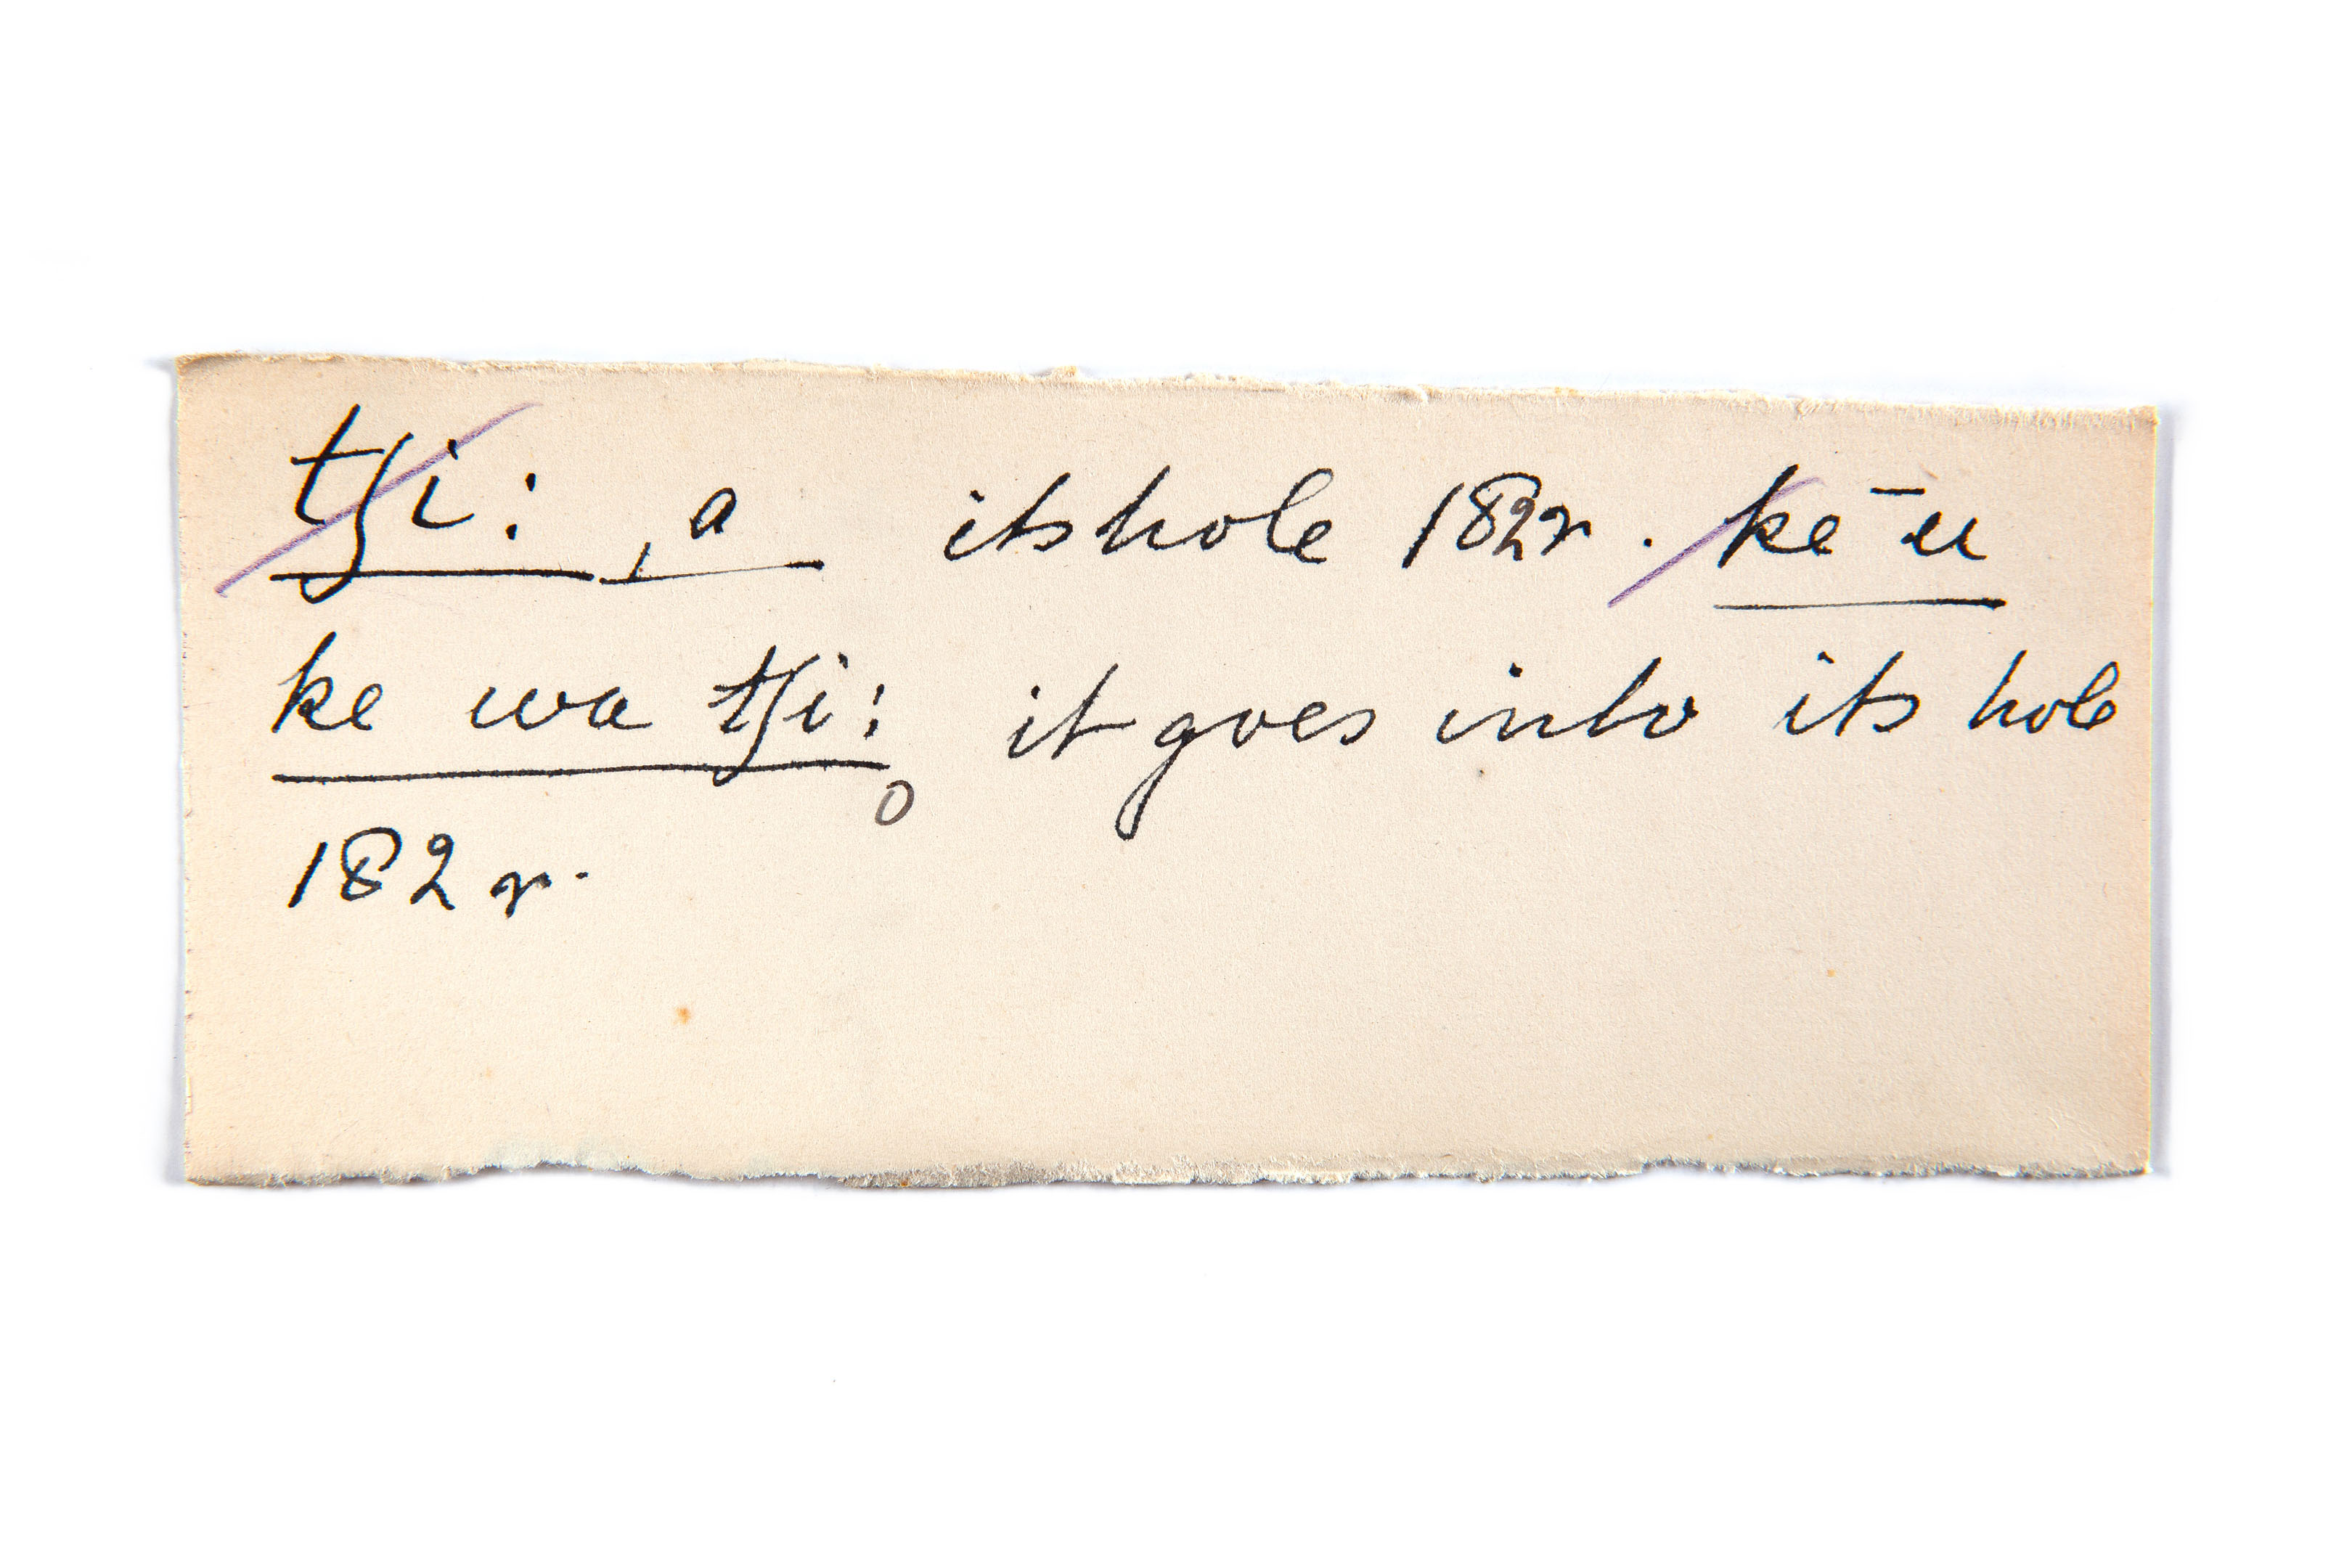 tʃi: ,a its hole 182r. ke ̄u
ke wa tʃi: it goes into its hole
o
182 r.